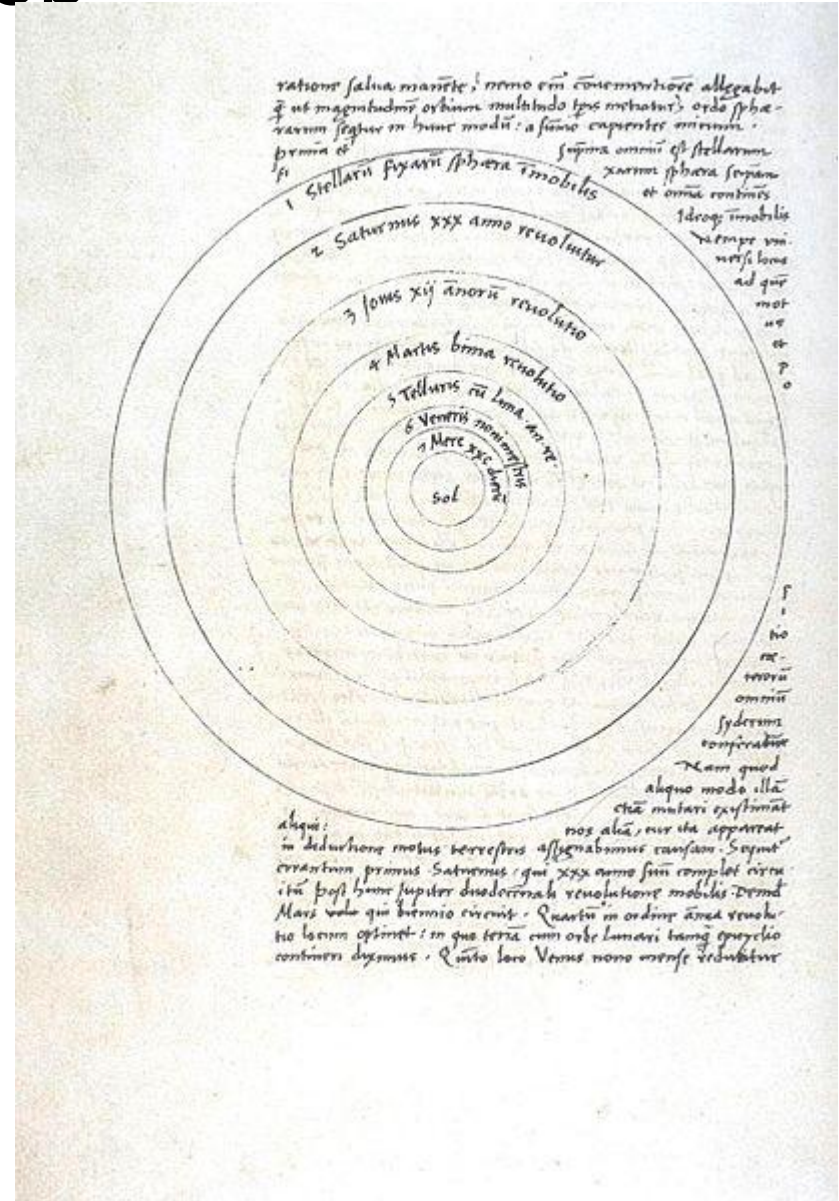 ratione salua manēte, nemo em̄ cōuenientiorē allegabit
q̄ ut magnitudinē orbium multitudo tp̄is metiatur, ordo sphæ-
rarum seq̄tur in hunc modū: a sūmo capientes initium.
prima et suprema omniū est stellarum
fi xarum sphæra seipsam
et omnia continēs
Ideoq; īmobilis
Nempe uni
uersi locus
ad quē
mot
us
et
p
o
1 Stellarū fixarū sphæra īmobilis
2 Saturnus xxx anno reuoluitur
3 Jouis xij ānorū reuolutio
4 Martis bima reuolutio
5 Telluris cū luna. an. re.
6 Veneris nonimestris
7 Merc xxc dierū
Sol
s
i
tio
cæ-
terorū
omniū
syderum
conferatur
Nam quod
aliquo modo illā
etiā mutari existimāt
aliqui: nos aliā, cur ita appareat
in deductione motus terrestris assignabimus causam. Sequit̄
errantium primus Saturnus, qui xxx anno suū complet circu
itū post hunc Jupiter duodecēnali reuolutione mobilis. Demū
Mars qui biennio circuit. Quartū in ordine ānua reuolu-
tio locum optinet: in quo terrā cum orbe Lunari tamq̄ epicyclio
contineri diximus. Quīto loco Venus nono mense reducitur